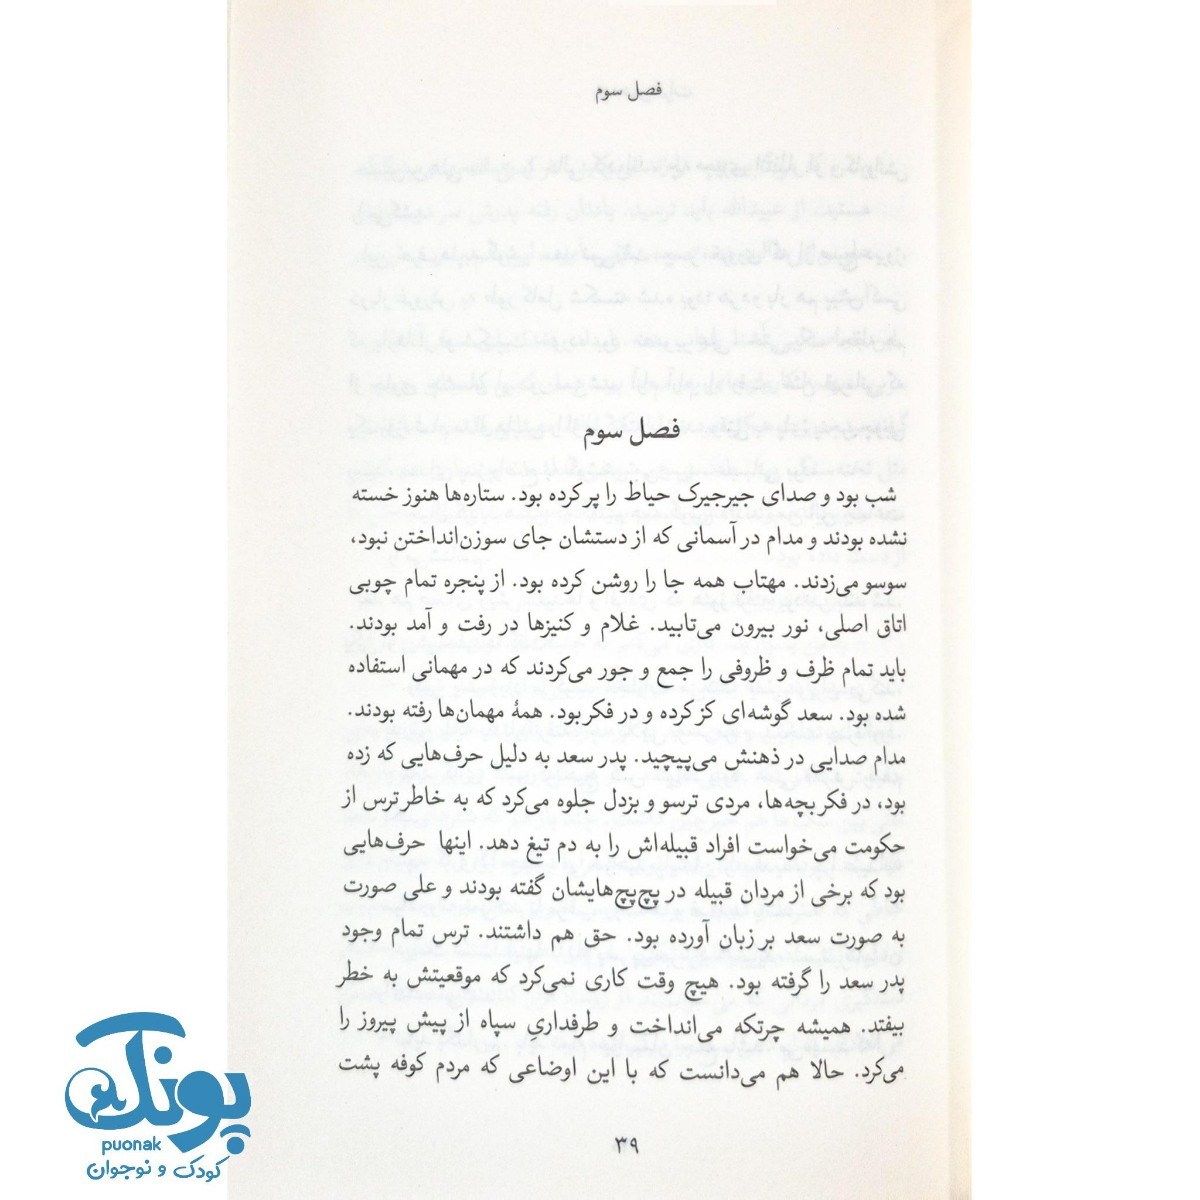 فصل سوم
فصل سوم
شب بود و صدای جیرجیرک حیاط را پر کرده بود. ستاره‌ها هنوز خسته
نشده بودند و مدام در آسمانی که از دستشان جای سوزن‌انداختن نبود،
سوسو می‌زدند. مهتاب همه جا را روشن کرده بود. از پنجره تمام چوبی
اتاق اصلی، نور بیرون می‌تابید. غلام و کنیزها در رفت و آمد بودند.
باید تمام ظرف و ظروفی را جمع و جور می‌کردند که در مهمانی استفاده
شده بود. سعد گوشه‌ای کز کرده و در فکر بود. همهٔ مهمان‌ها رفته بودند.
مدام صدایی در ذهنش می‌پیچید. پدر سعد به دلیل حرف‌هایی که زده
بود، در فکر بچه‌ها، مردی ترسو و بزدل جلوه می‌کرد که به خاطر ترس از
حکومت می‌خواست افراد قبیله‌اش را به دم تیغ دهد. اینها حرف‌هایی
بود که برخی از مردان قبیله در پچ‌پچ‌هایشان گفته بودند و علی صورت
به صورت سعد بر زبان آورده بود. حق هم داشتند. ترس تمام وجود
پدر سعد را گرفته بود. هیچ وقت کاری نمی‌کرد که موقعیتش به خطر
بیفتد. همیشه چرتکه می‌انداخت و طرفداریِ سپاه از پیش پیروز را
می‌کرد. حالا هم می‌دانست که با این اوضاعی که مردم کوفه پشت
۳۹
پونک
puonak
کودک و نوجوان